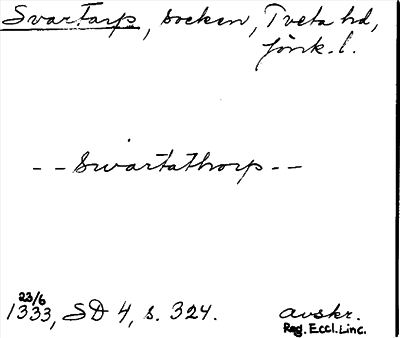 Svartarp, socken, Tveta hd,
Jönk. l.
-- Swartathorp --
23/6
1333, SD 4, s. 324.
avskr.
Reg. Eccl. Linc.